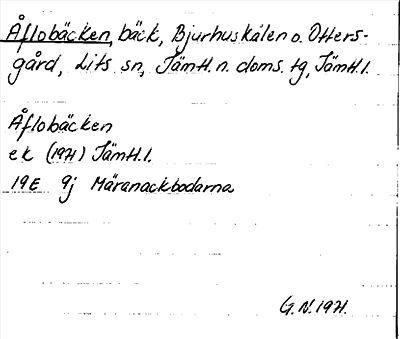 Åflobäcken, bäck, Bjurhuskälen o. Otters-
gård, Lits sn, Jämtl. n. doms. tg, Jämtl. l.
Åflobäcken
ek (1971) Jämtl. l.
19E 9j Märanackbodarna
G. N. 1971.